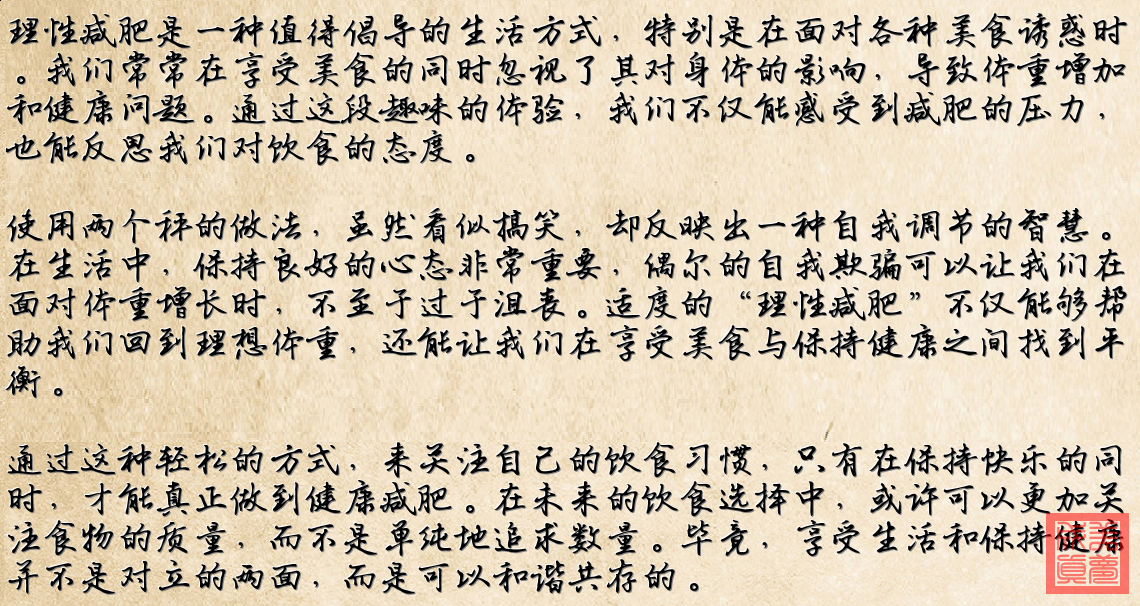 理性减肥是一种值得倡导的生活方式，特别是在面对各种美食诱惑时
。我们常常在享受美食的同时忽视了其对身体的影响，导致体重增加
和健康问题。通过这段趣味的体验，我们不仅能感受到减肥的压力，
也能反思我们对饮食的态度。
使用两个秤的做法，虽然看似搞笑，却反映出一种自我调节的智慧。
在生活中，保持良好的心态非常重要，偶尔的自我欺骗可以让我们在
面对体重增长时，不至于过于沮丧。适度的“理性减肥”不仅能够帮
助我们回到理想体重，还能让我们在享受美食与保持健康之间找到平
衡。
通过这种轻松的方式，来关注自己的饮食习惯，只有在保持快乐的同
时，才能真正做到健康减肥。在未来的饮食选择中，或许可以更加关
注食物的质量，而不是单纯地追求数量。毕竟，享受生活和保持健康
并不是对立的两面，而是可以和谐共存的。